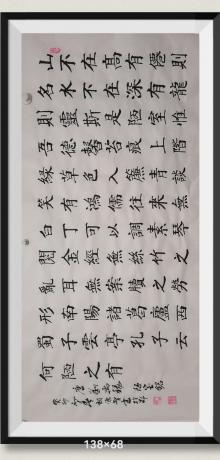 山不在高有僊則
名水不在深有龍
則靈斯是陋室惟
吾德馨苔痕上階
緣草色入簾青談
笑有鴻儒往來無
白丁可以調素琴
閱金經無絲竹之
亂耳無案牘之勞
形南陽諸葛廬西
蜀子雲亭孔子云
何陋之有
唐劉禹錫陋室銘
138×68